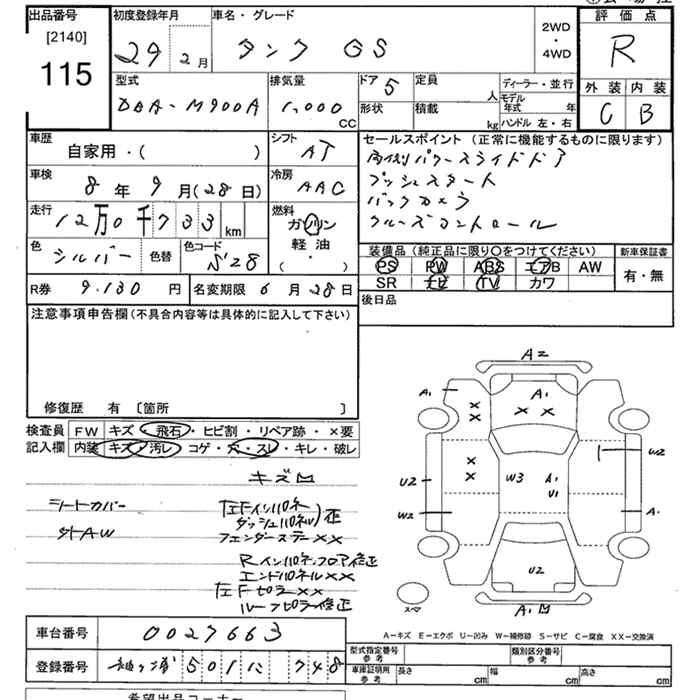 出品番号 初度登録年月 車名・グレード 評価点
[2140]
115
29 2月 タンク GS 2WD・4WD R
型式 排気量 ドア 5 定員 人 ディーラー・並行 外装 内装
DBA-M900A 1,000 CC 形状 積載 kg モデル年式 年 ハンドル 左・右 C B
車歴 シフト セールスポイント(正常に機能するものに限ります)
自家用・( ) AT 両側パワースライドドア
車検 冷房 プッシュスタート
8年 9月(28日) AAC バックカメラ
走行 燃料 クルーズコントロール
12万0千733 km ガソリン
軽油
( ・ )
色 シルバー 色替 色コード S28 装備品(純正品に限り〇をつけてください) 新車保証書
PS PW ABS エアB AW 有・無
SR ナビ TV カワ
R券 9,130 円 名変期限 6月28日 後日品
注意事項申告欄(不具合内容等は具体的に記入して下さい)
修復歴 有 〔箇所 〕
検査員 FW キズ・飛石・ヒビ割・リペア跡・×要
記入欄 内装 キズ・汚レ・コゲ・穴・スレ・キレ・破レ
キズ凹
シートカバー
社外AW
左Fインパネ
ダッシュパネル)歪
フェンダーステー××
Rインパネ、フロア修正
エンドパネル××
左Fピラー××
ルーフピラー修正
A2
A1 A1
× × × ×
× ×
W2
U2 W3 A1
U1
W2 A1
U2
A1 凹
スペア
A-キズ E-エクボ U-凹み W-補修跡 S-サビ C-腐食 XX-交換済
車台番号 0027663
登録番号 袖ヶ浦 501 に 748
型式指定番号 参考 類別区分番号 参考
車庫証明用 参考 長さ cm 幅 cm 高さ cm
希望出品コーナー